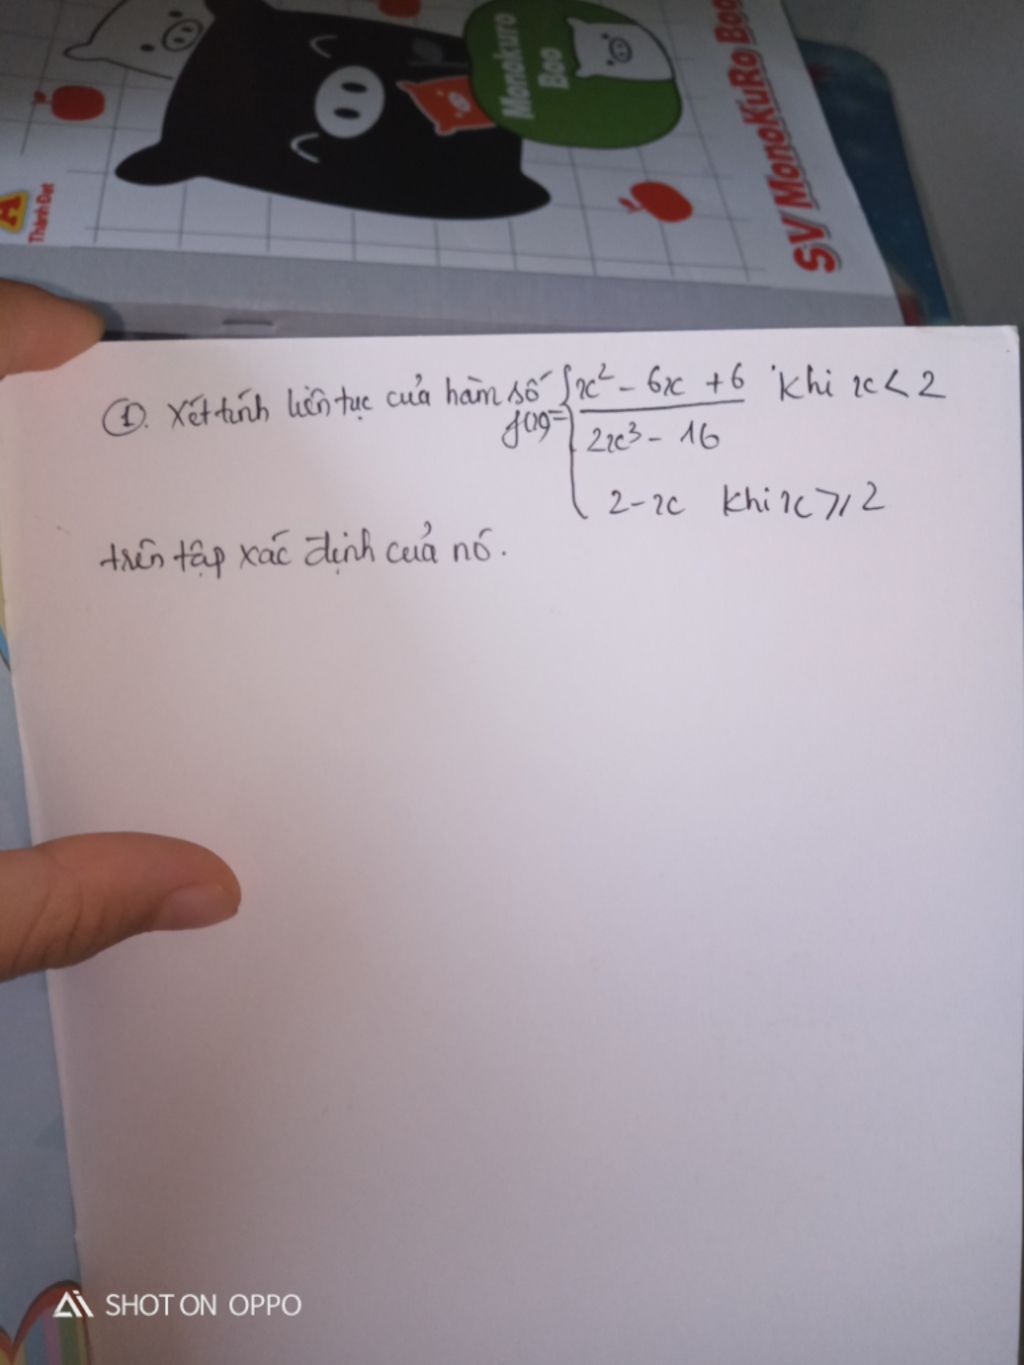 Monokuro
Boo
SV MonoKuRo Boo
A
Thành Đạt
①. Xét tính liên tục của hàm số f(x)= { x² - 6x + 6 / 2x³ - 16 khi x < 2
2-x khi x ⩾ 2
trên tập xác định của nó.
SHOT ON OPPO